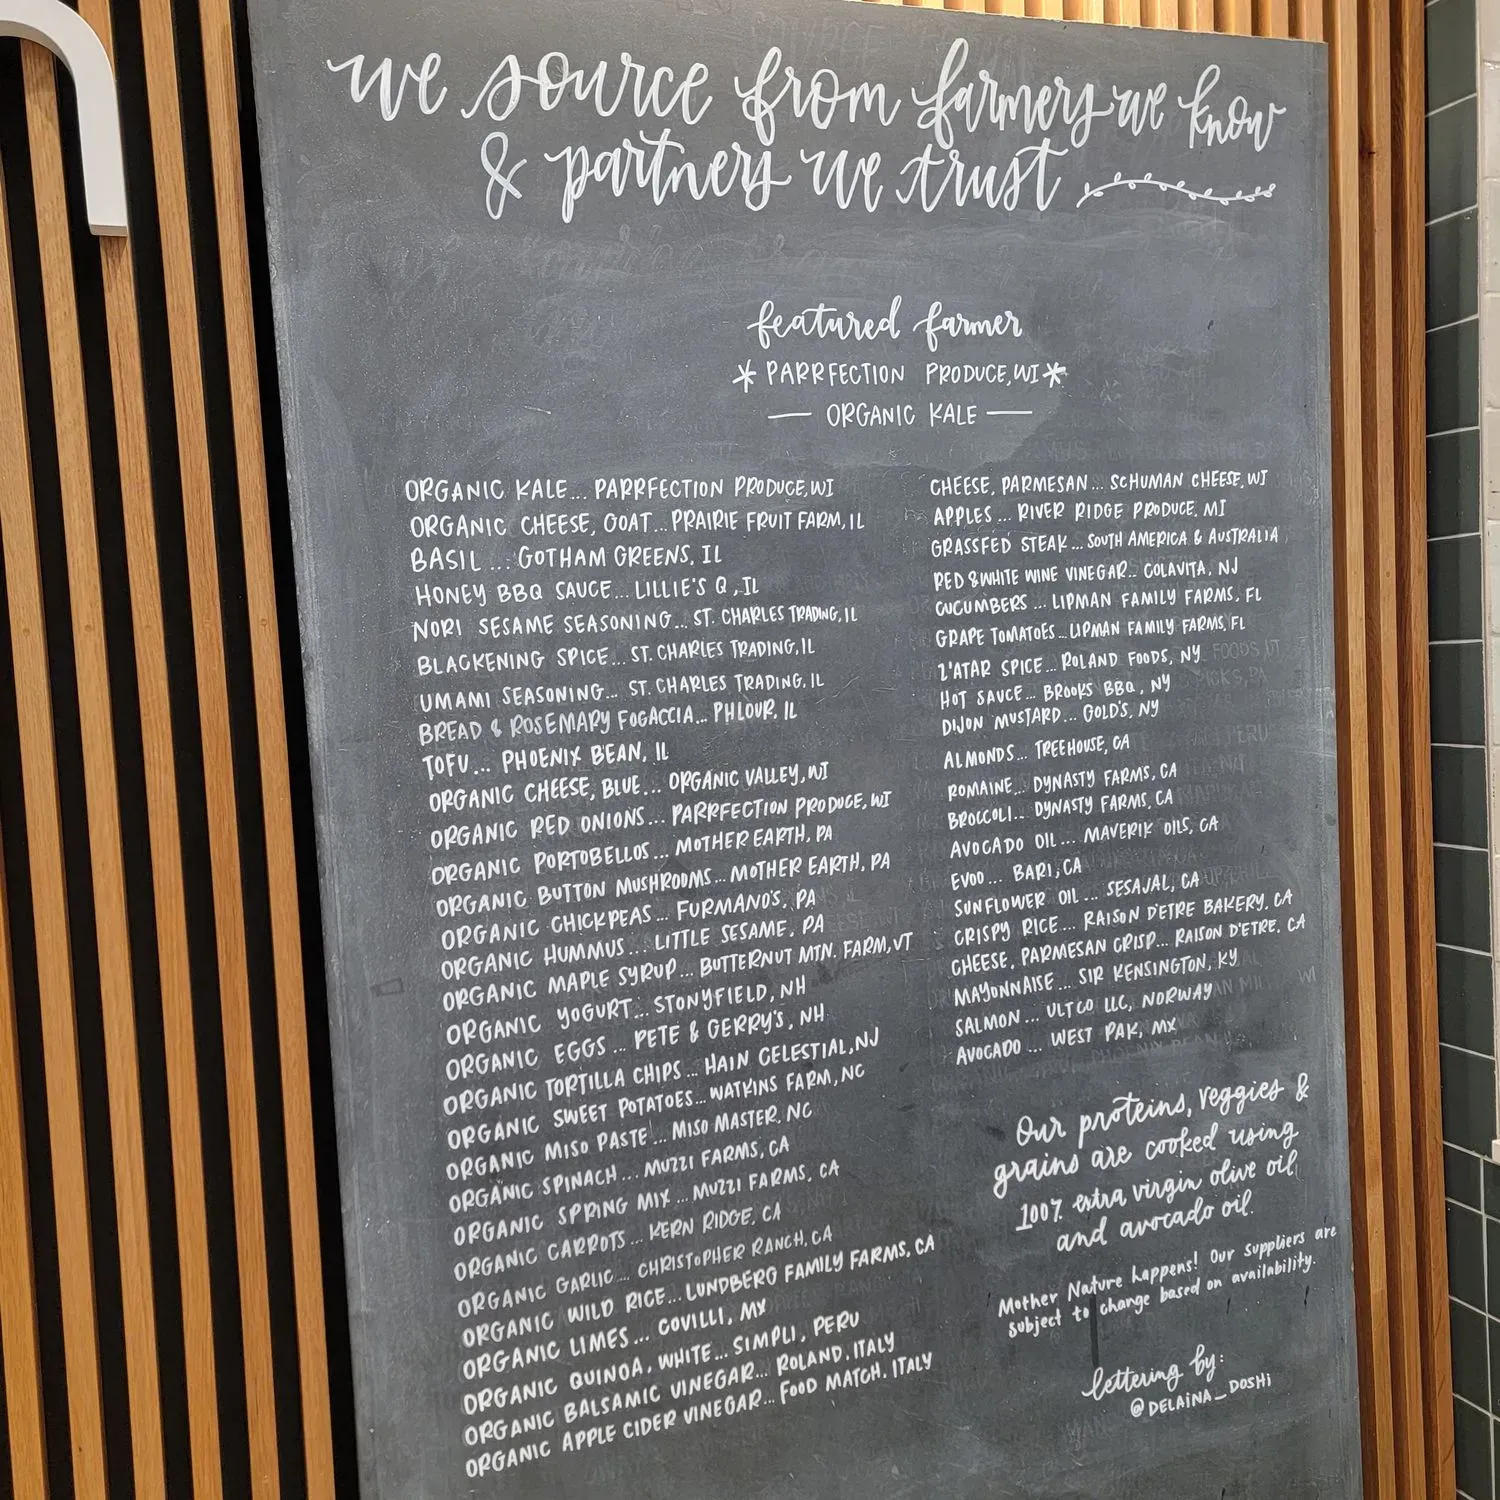 we source from farmers we know
& partners we trust
featured farmer
* PARRFECTION PRODUCE, WI *
— ORGANIC KALE —
ORGANIC KALE... PARRFECTION PRODUCE, WI
ORGANIC CHEESE, GOAT... PRAIRIE FRUIT FARM, IL
BASIL ... GOTHAM GREENS, IL
HONEY BBQ SAUCE... LILLIE'S Q, IL
NORI SESAME SEASONING... ST. CHARLES TRADING, IL
BLACKENING SPICE... ST. CHARLES TRADING, IL
UMAMI SEASONING... ST. CHARLES TRADING, IL
BREAD & ROSEMARY FOGACCIA... PHLOUR, IL
TOFU... PHOENIX BEAN, IL
ORGANIC CHEESE, BLUE... ORGANIC VALLEY, WI
ORGANIC RED ONIONS... PARRFECTION PRODUCE, WI
ORGANIC PORTOBELLOS... MOTHER EARTH, PA
ORGANIC BUTTON MUSHROOMS... MOTHER EARTH, PA
ORGANIC CHICKPEAS... FURMANO'S, PA
ORGANIC HUMMUS... LITTLE SESAME, PA
ORGANIC MAPLE SYRUP... BUTTERNUT MTN. FARM, VT
ORGANIC YOGURT... STONYFIELD, NH
ORGANIC EGGS... PETE & GERRY'S, NH
ORGANIC TORTILLA CHIPS... HAIN CELESTIAL, NJ
ORGANIC SWEET POTATOES... WATKINS FARM, NC
ORGANIC MISO PASTE... MISO MASTER, NC
ORGANIC SPINACH... MUZZI FARMS, CA
ORGANIC SPRING MIX... MUZZI FARMS, CA
ORGANIC CARROTS... KERN RIDGE, CA
ORGANIC GARLIC... CHRISTOPHER RANCH, CA
ORGANIC WILD RICE... LUNDBERG FAMILY FARMS, CA
ORGANIC LIMES... COVILLI, MX
ORGANIC QUINOA, WHITE... SIMPLI, PERU
ORGANIC BALSAMIC VINEGAR... ROLAND, ITALY
ORGANIC APPLE CIDER VINEGAR... FOOD MATCH, ITALY
CHEESE, PARMESAN... SCHUMAN CHEESE, WI
APPLES... RIVER RIDGE PRODUCE, MI
GRASSFED STEAK... SOUTH AMERICA & AUSTRALIA
RED & WHITE WINE VINEGAR... COLAVITA, NJ
CUCUMBERS... LIPMAN FAMILY FARMS, FL
GRAPE TOMATOES... LIPMAN FAMILY FARMS, FL
Z'ATAR SPICE... ROLAND FOODS, NY
HOT SAUCE... BROOKS BBQ, NY
DIJON MUSTARD... GOLD'S, NY
ALMONDS... TREEHOUSE, CA
ROMAINE... DYNASTY FARMS, CA
BROCCOLI... DYNASTY FARMS, CA
AVOCADO OIL... MAVERIK OILS, CA
EVOO... BARI, CA
SUNFLOWER OIL... SESAJAL, CA
CRISPY RICE... RAISON D'ETRE BAKERY, CA
CHEESE, PARMESAN CRISP... RAISON D'ETRE, CA
MAYONNAISE... SIR KENSINGTON, KY
SALMON... ULTCO LLC, NORWAY
AVOCADO... WEST PAK, MX
Our proteins, veggies &
grains are cooked using
100% extra virgin olive oil
and avocado oil.
Mother Nature happens! Our suppliers are
subject to change based on availability.
lettering by:
@DELAINA_DOSHI